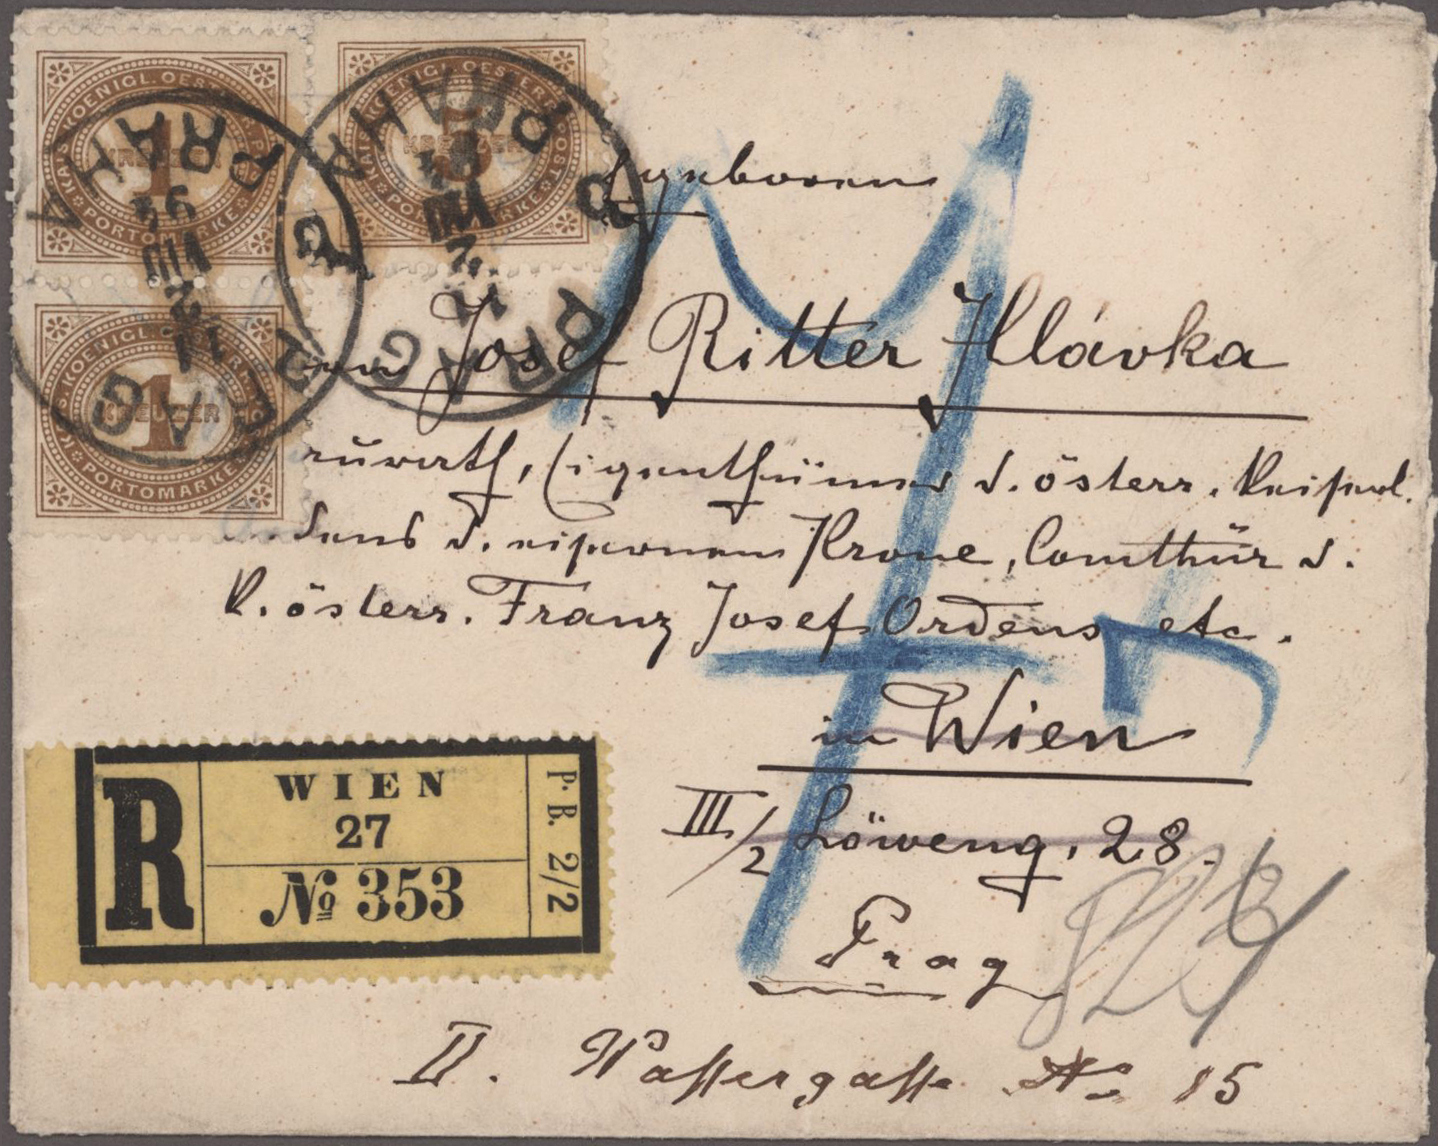 KAIS. KOENIGL. OESTERR. POST
1
KREUZER
PORTOMARKE
KAIS. KOENIGL. OESTERR. POST
5
KREUZER
PORTOMARKE
KAIS. KOENIGL. OESTERR. POST
1
KREUZER
PORTOMARKE
PRAG 2 PRAHA
VIII
PRAG 2 PRAHA
VIII
Josef Ritter Hlávka
Eigenthümer d. österr. Kaiserl.
d. eisernen Krone, Comthür d.
k. österr. Franz Josef Ordens etc.
in Wien
III/2 Löweng. 28.
Prag
II. Wassergasse No 15
R
WIEN
27
№ 353
P. B. 2/2